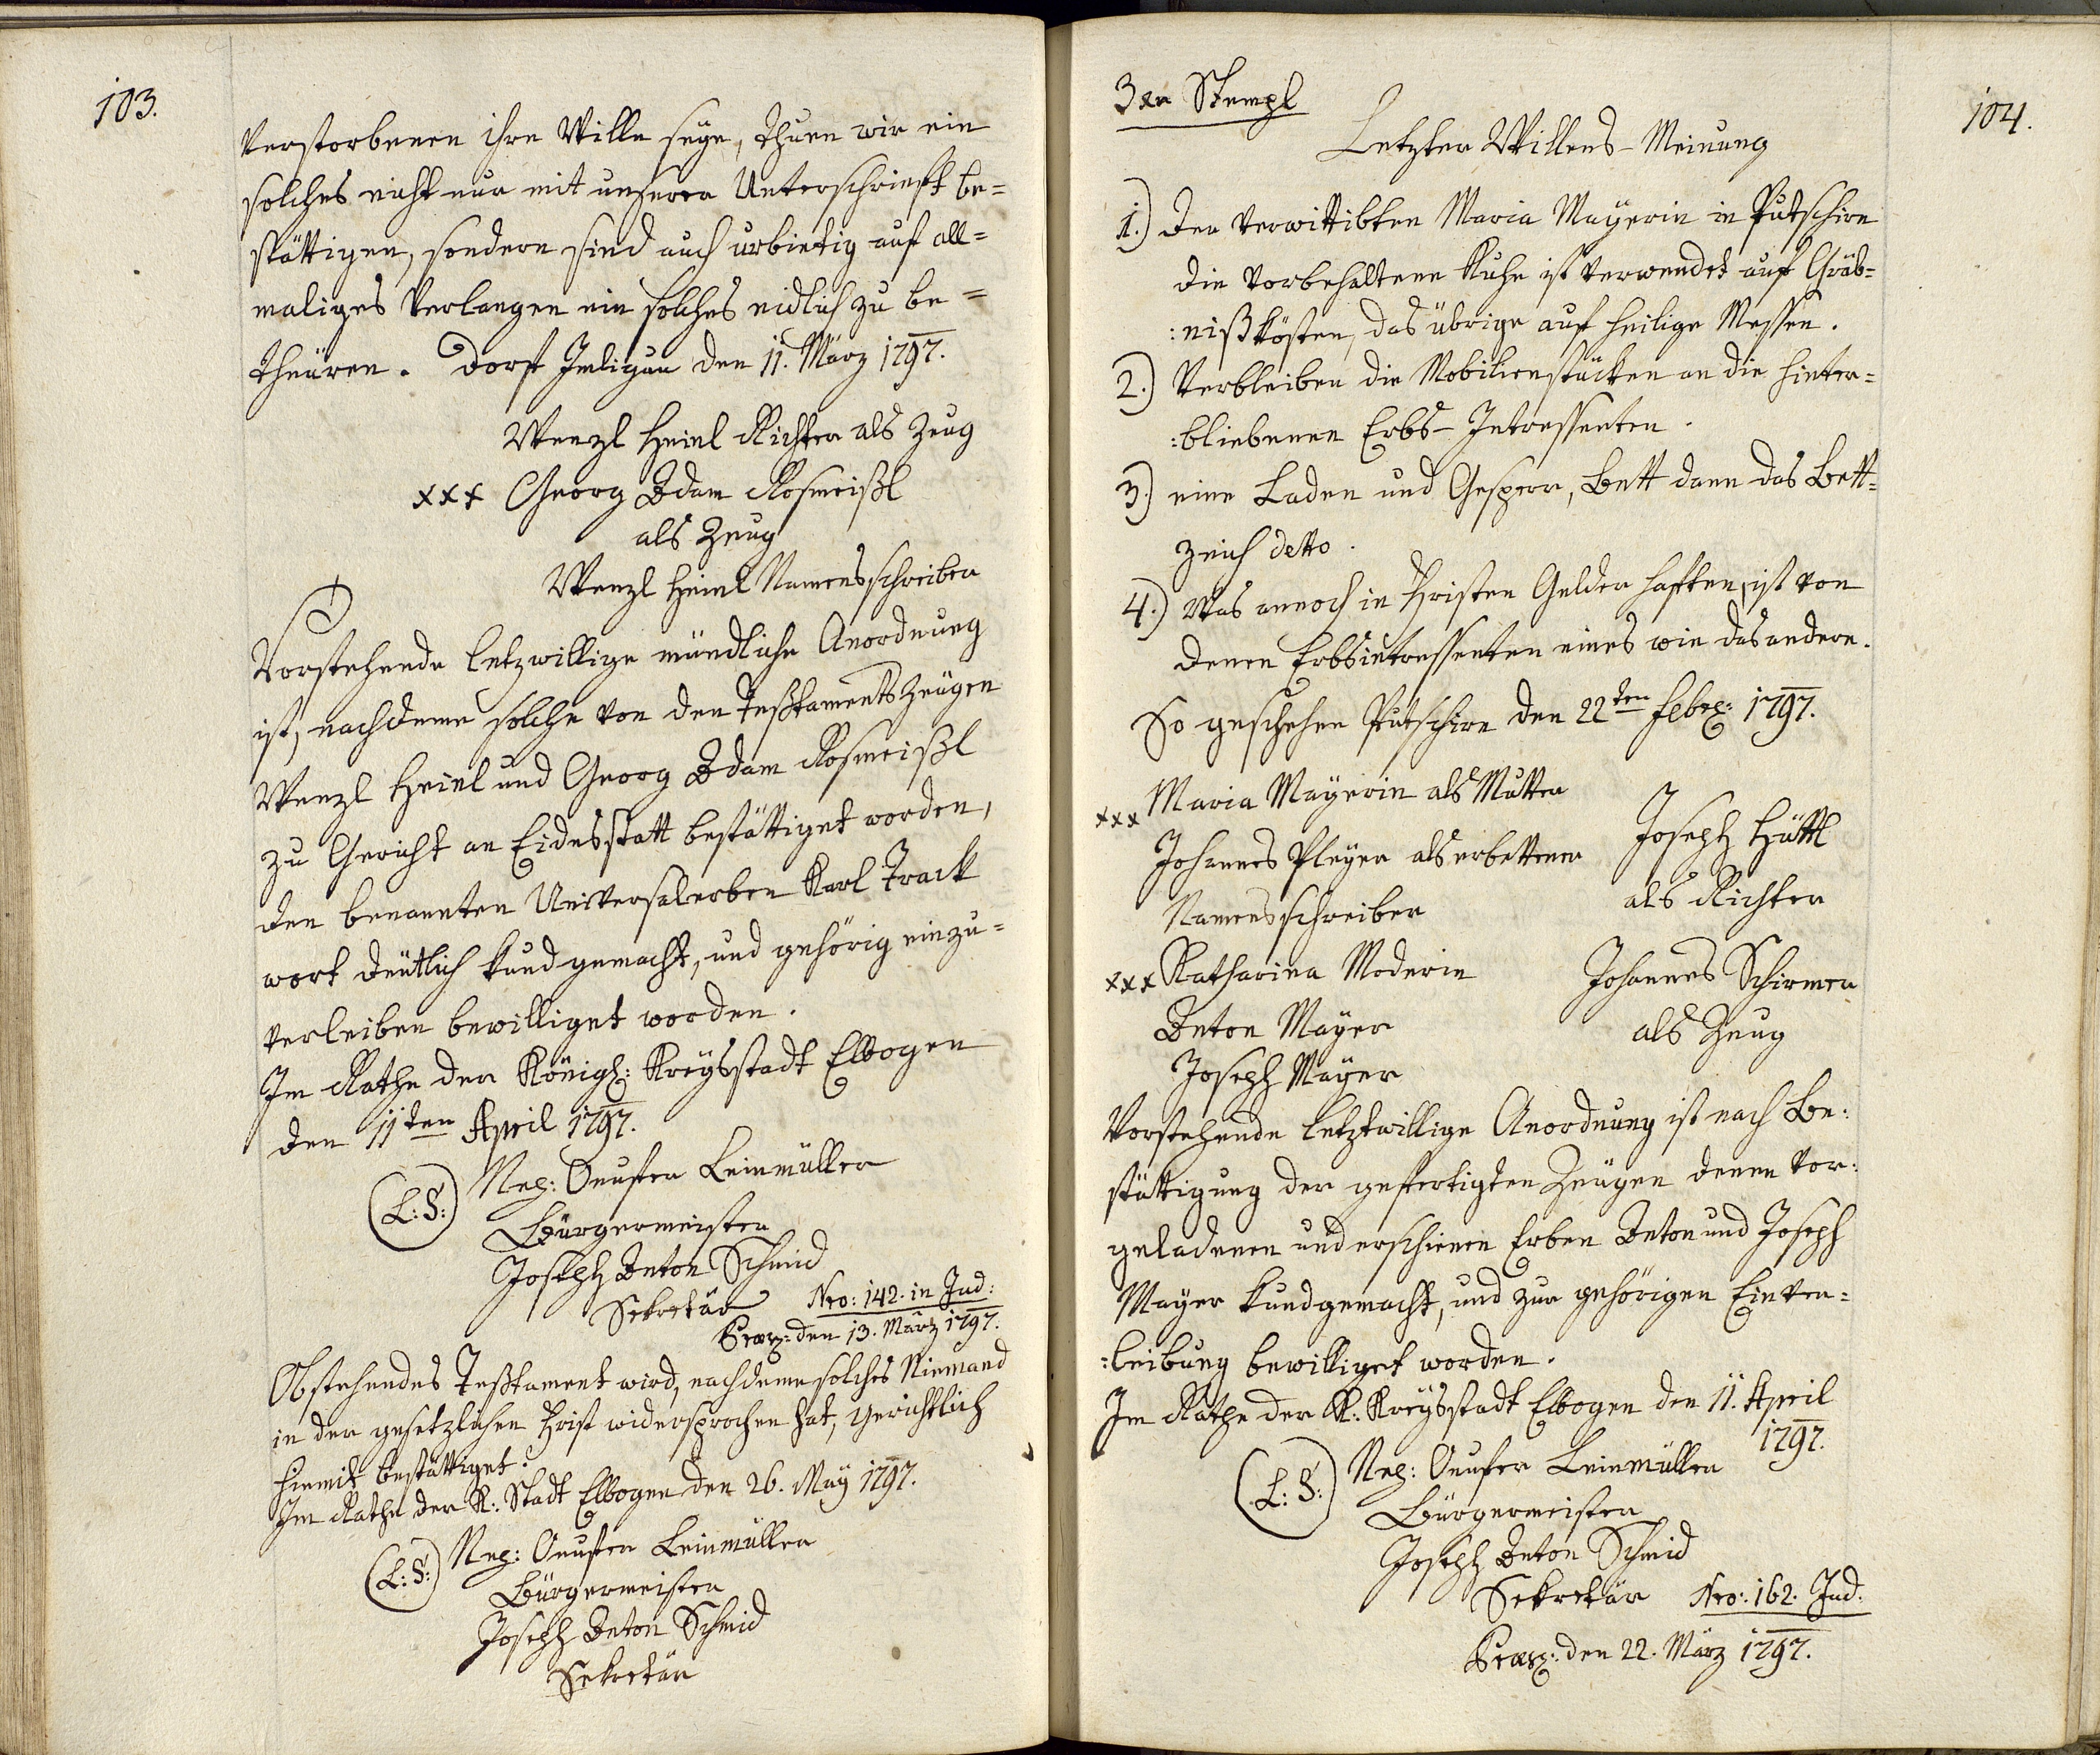 103.
verstorbenen ihre Wille seye, thuen wir ein
solches nicht nur mit unserer Unterschrieft be=
stättigen, sondern sind auch urbietig auf all=
maliges Verlangen ein solches eidlich zu be=
theüren. Dorf Imligau den 11. März 1797.
Wenzl Heinl Richter als Zeug
xxx Georg Adam Rosmeißl
als Zeug
Wenzl Heinl Namensschreiber
Vorstehende letzwillige mündliche Anordnung
ist, nachdeme solche von den Testaments Zeügen
Wenzl Heinl und Georg Adam Rosmeißl
zu Gericht an Eidesstatt bestättiget worden,
den benannten Universalerben Karl Track
wort deutlich kund gemacht, und gehörig einzu=
verleiben bewilliget worden.
Im Rathe der Königl: Kreysstadt Elbogen
den 11ten April 1797.
(L:S:) Neg: Onufer Leinmüller
Bürgermeister
Joseph Anton Schmid
Sekretär Nro: 142. in Jud:
Praes: den 13. März 1797.
Obstehendes Testament wird, nachdeme solches Niemand
in der gesetzlichen Frist widersprochen hat, gerichtlich
hiemit bestättiget.
Im Rathe der K: Stadt Elbogen den 26. May 1797.
(L:S:) Neg: Onufer Leinmüller
Bürgermeister
Joseph Anton Schmid
Sekretär
104.
3xr Stempl
Letzter Willens-Meinung
1.) Der verwittibten Maria Mayerin in Putschirn
die vorbehaltene Kuhe ist verwendet auf Gräb=
:nißkösten, das übrige auf heilige Messen.
2.) Verbleiben die Mobilienstücken an die hinter=
:bliebenen Erbs-Intressenten.
3.) eine Laden und Gesperr, Bett dann das Bett=
zeich detto.
4.) Was annoch in Fristen Gelder haften, ist von
denen Erbsintressenten eines wie das andere.
So geschehen Putschirn den 22ten Febr: 1797.
xxx Maria Mayerin als Mutter
Johannes Pleyer als erbettener
Namensschreiber
Joseph Hüttl
als Richter
xxx Katharina Moderin
Anton Mayer
Joseph Mayer
Johannes Schirmer
als Zeug
Vorstehende letztwillige Anordnung ist nach Be:
stättigung der gefertigten Zeügen denen vor:
geladenen und erschienen Erben Anton und Joseph
Mayer kundgemacht, und zur gehörigen Einver=
:leibung bewilliget worden.
Im Rathe der K: Kreysstadt Elbogen den 11. April
1797.
(L:S:) Neg: Onufer Leinmüller
Bürgermeister
Joseph Anton Schmid
Sekretär Nro: 162. Jud:
Praes: den 22. März 1797.